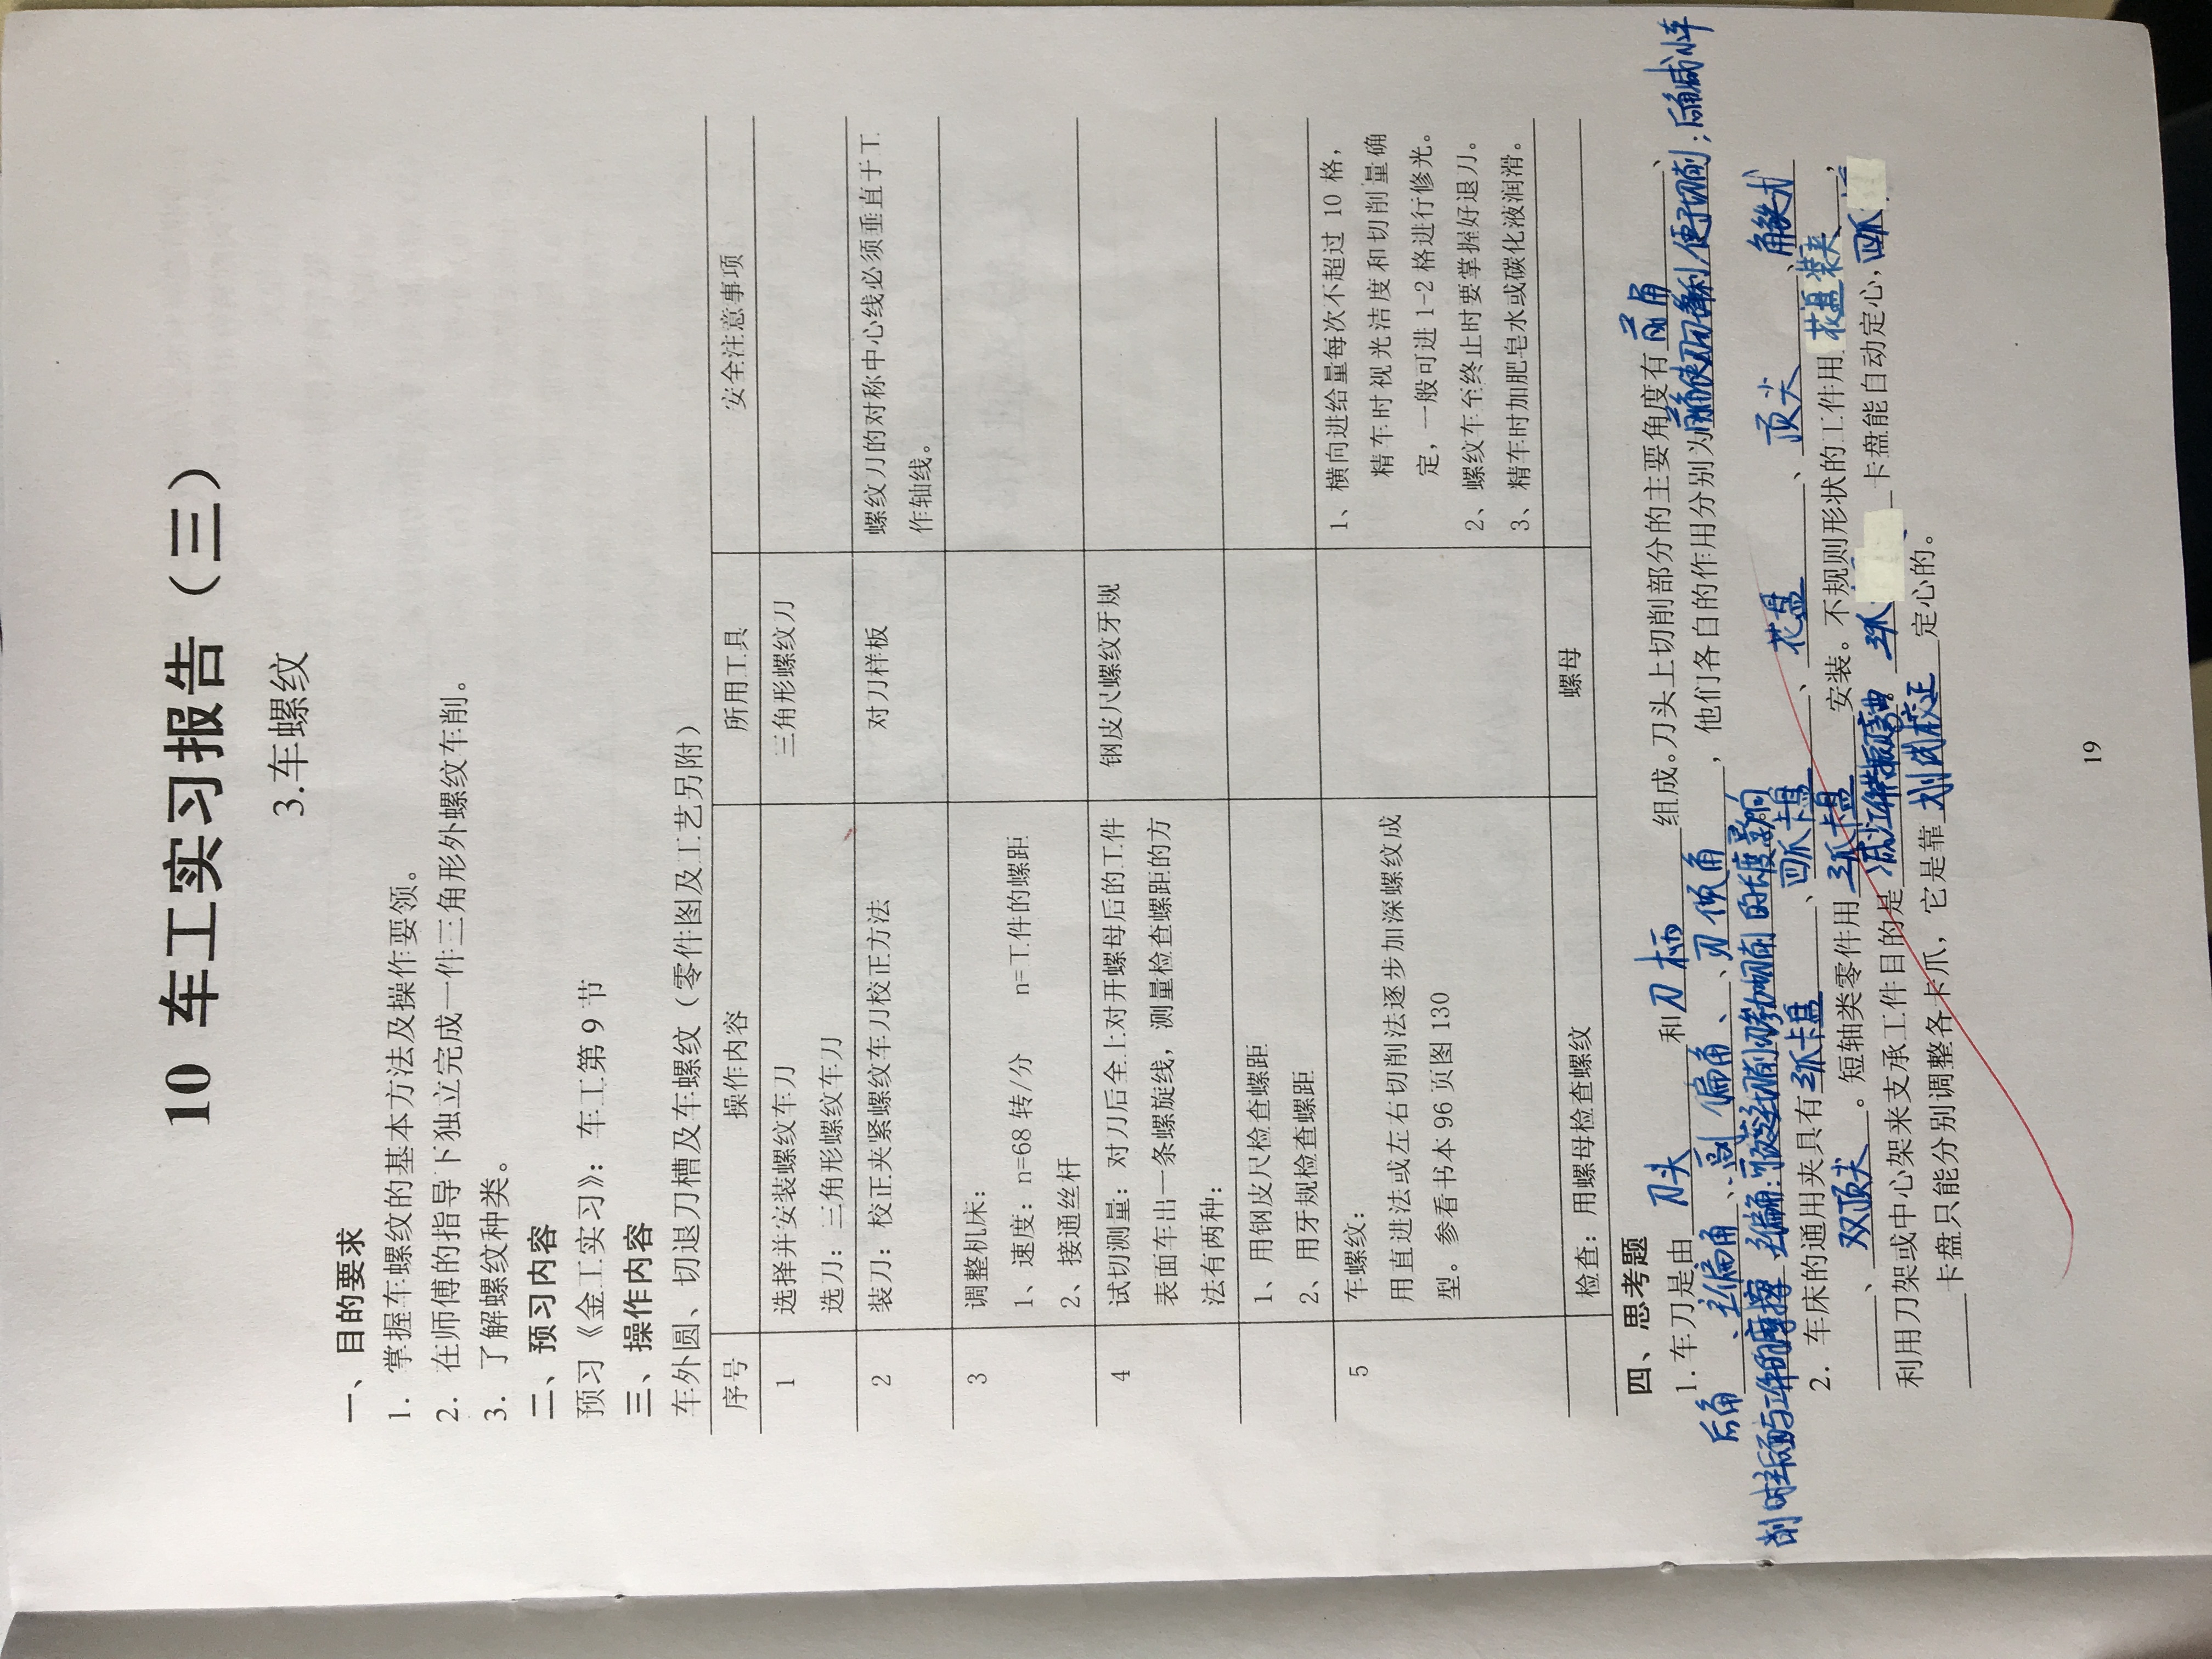 10 车工实习报告（三）
3.车螺纹
一、目的要求
1．掌握车螺纹的基本方法及操作要领。
2．在师傅的指导下独立完成一件三角形外螺纹车削。
3．了解螺纹种类。
二、预习内容
预习《金工实习》：车工第 9 节
三、操作内容
车外圆、切退刀槽及车螺纹（零件图及工艺另附）
序号 操作内容 所用工具 安全注意事项
1 选择并安装螺纹车刀 三角形螺纹刀
选刀：三角形螺纹车刀
2 装刀：校正夹紧螺纹车刀校正方法 对刀样板 螺纹刀的对称中心线必须垂直于工
作轴线。
3 调整机床：
1、速度：n=68 转/分 n=工件的螺距
2、接通丝杆
4 试切测量：对刀后全上对开螺母后的工件 钢皮尺螺纹牙规
表面车出一条螺旋线，测量检查螺距的方
法有两种：
1、用钢皮尺检查螺距
2、用牙规检查螺距
5 车螺纹：
用直进法或左右切削法逐步加深螺纹成
型。参看书本 96 页图 130
1、横向进给量每次不超过 10 格，
精车时视光洁度和切削量确
定，一般可进 1-2 格进行修光。
2、螺纹车至终止时要掌握好退刀。
3、精车时加肥皂水或碳化液润滑。
检查：用螺母检查螺纹 螺母
四、思考题
1.车刀是由 刀头 和 刀柄 组成。刀头上切削部分的主要角度有 前角 、
后角 、主偏角 、副偏角 、刃倾角 ，他们各自的作用分别为 前角使刀刃锋利，便于切削；后角减小车
削时主后面与工件的摩擦 主偏角：可改变主切削刃参加切削的长度影响
2．车床的通用夹具有 三爪卡盘 、四爪卡盘 、花盘 、顶尖 、角铁
、双顶尖 。短轴类零件用 三爪卡盘 安装。不规则形状的工件用 花盘装夹 ，
利用刀架或中心架来支承工件目的是 减少工件 弯曲。 三爪 卡盘能自动定心，四爪
卡盘只能分别调整各卡爪，它是靠 划线校正 定心的。
19